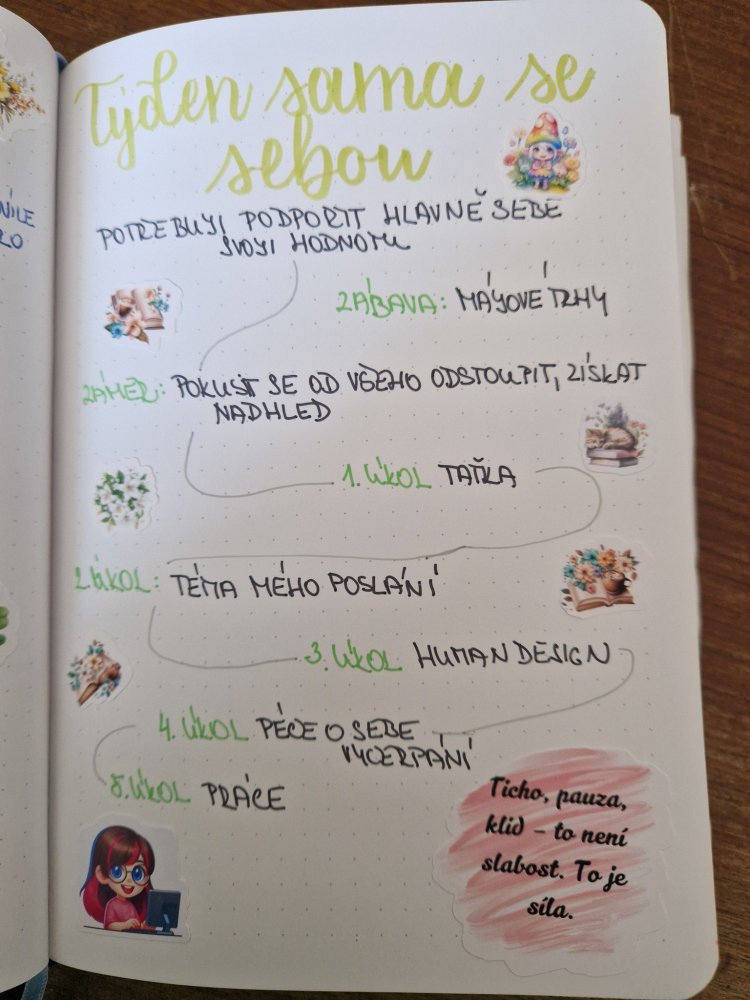 NILE
Týden sama se
sebou
POTŘEBUJI PODPOŘIT HLAVNĚ SEBE
SVOJI HODNOTU
ZÁBAVA: MÁJOVÉ TRHY
ZÁMĚR: POKUSIT SE OD VŠEHO ODSTOUPIT, ZÍSKAT
NADHLED
1. ÚKOL TAŤKA
2. ÚKOL: TÉMA MÉHO POSLÁNÍ
3. ÚKOL HUMAN DESIGN
4. ÚKOL PÉČE O SEBE
VYČERPÁNÍ
5. ÚKOL PRÁCE
Ticho, pauza,
klid – to není
slabost. To je
síla.